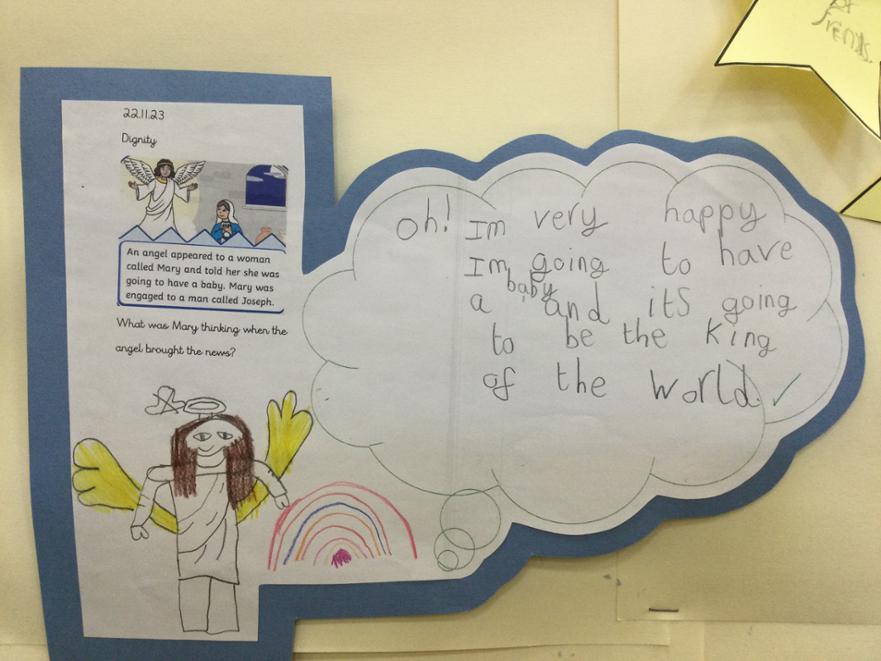 22.11.23
Dignity
An angel appeared to a woman
called Mary and told her she was
going to have a baby. Mary was
engaged to a man called Joseph.
What was Mary thinking when the
angel brought the news?
oh! Im very happy
Im going to have
a baby and its going
to be the King
of the world.
of
friends.